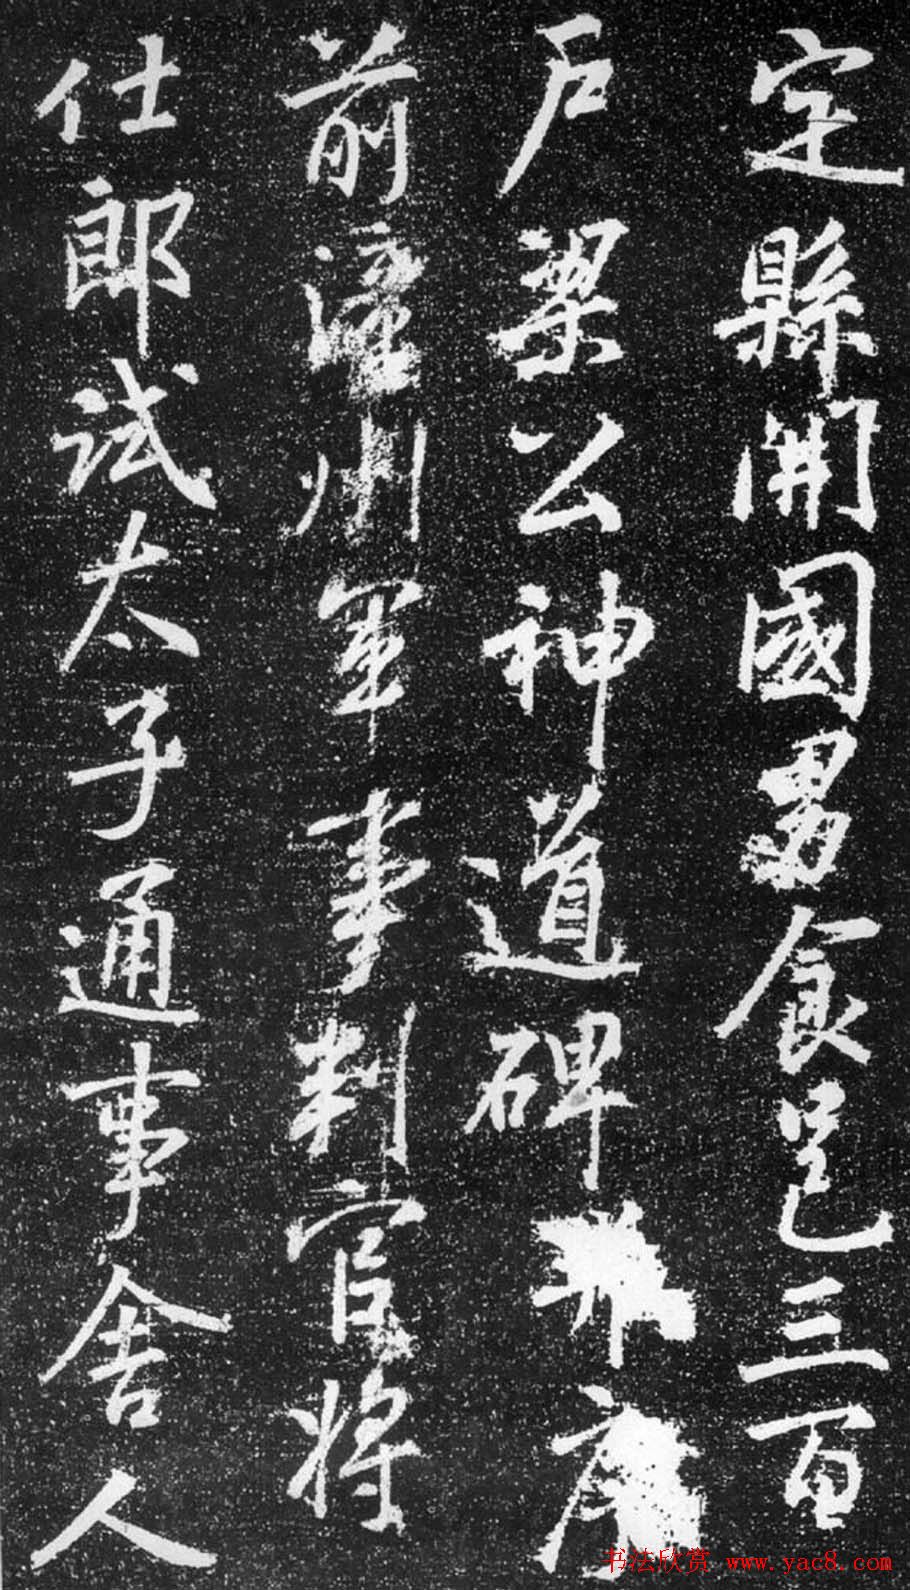 定縣開國男食邑三百
户梁公神道碑并序
前漳州軍事判官將
仕郎試太子通事舍人
书法欣赏 www.yac8.com